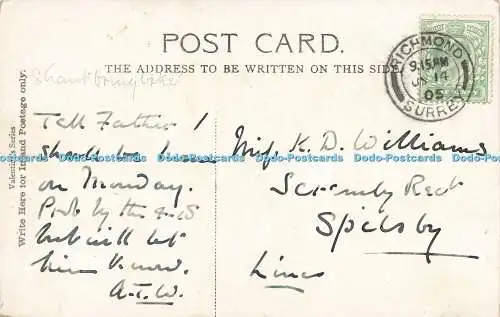 POST CARD.
THE ADDRESS TO BE WRITTEN ON THIS SIDE.
RICHMOND
9.15AM
JA 14
05
SURREY
Valentine's Series
Write Here for Inland Postage only.
Tell Father I
shall be home
on Monday.
Prob by the 4-15
but will let
him know.
A.T.W.
Miss K. D. Williams
Rect
Spilsby
Lincs
Dodo-Postcards Dodo-Postcards Dodo-Postcards Dodo-Postcards Dodo-Postcards Dodo-Postcards